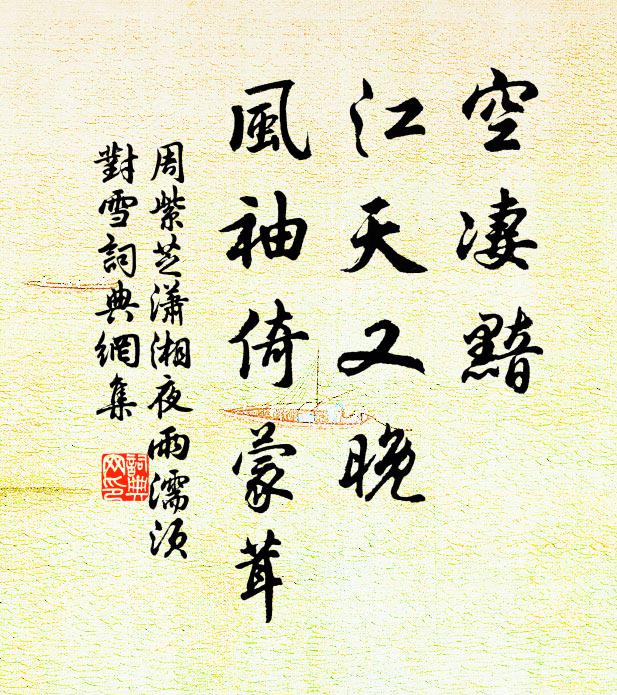 空凄黯
江天又晚
風袖倚蒙茸
周紫芝瀟湘夜雨濡須
對雪詞典網集
詞典
网印